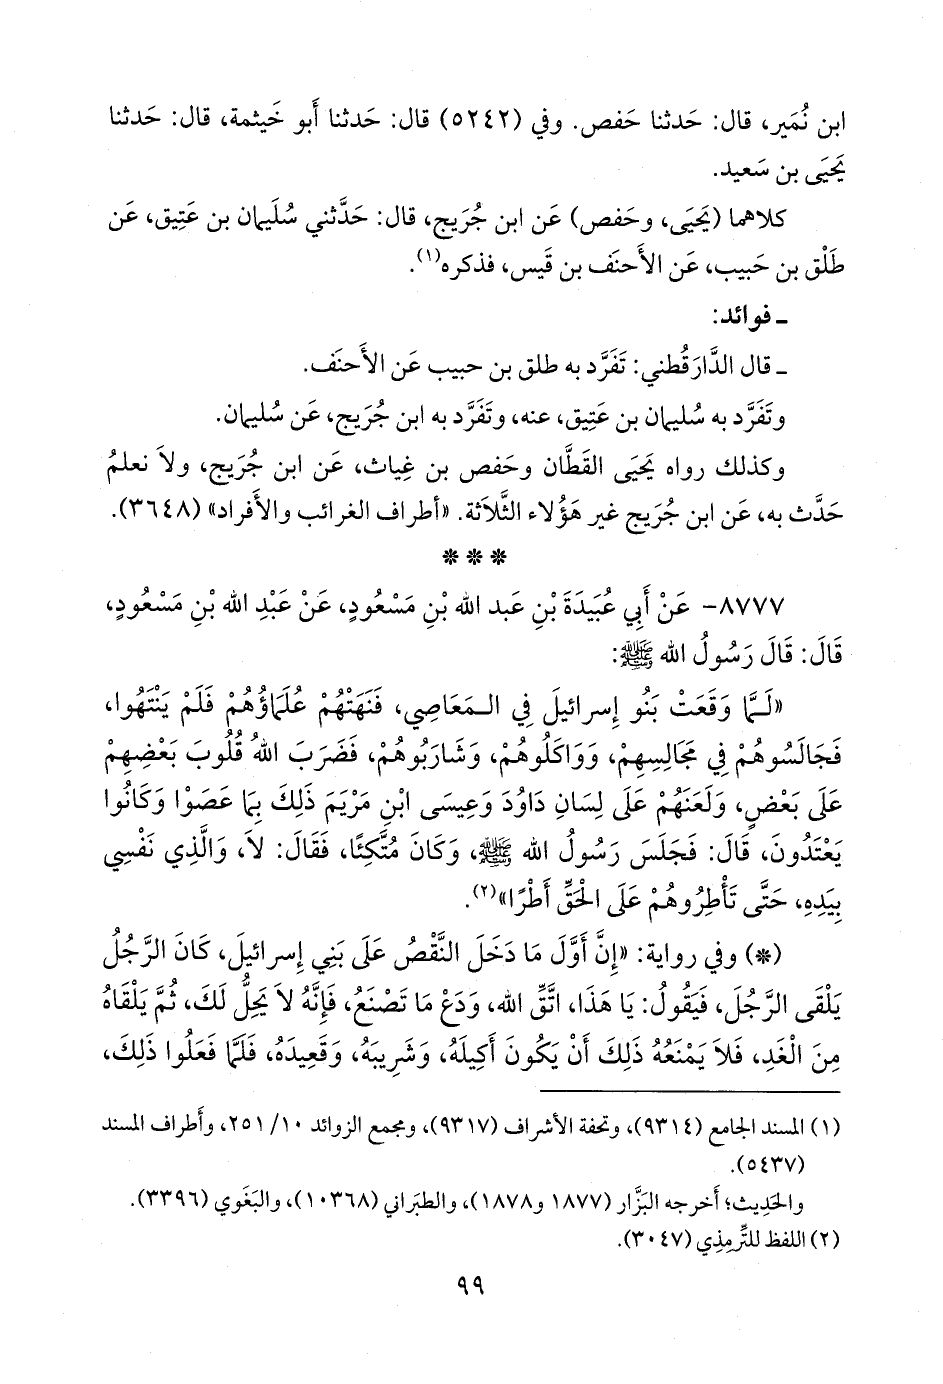 ابن نُمَير، قال: حَدثنا حَفص. وفي (٥٢٤٢) قال: حَدثنا أَبو خَيثمة، قال: حَدثنا
يَحيَى بن سَعيد.
كلاهما (يَحيَى، وحَفص) عَن ابن جُرَيج، قال: حَدَّثني سُلَيمان بن عَتِيق، عَن
طَلْق بن حَبيب، عَن الأَحنَف بن قَيس، فذكره(١).
ـ فوائد:
ـ قال الدَّارَقُطني: تَفَرَّد به طلق بن حبيب عَن الأَحنَف.
وتَفَرَّد به سُليمان بن عَتيق، عنه، وتَفَرَّد به ابن جُرَيج، عَن سُليمان.
وكذلك رواه يَحيَى القَطَّان وحَفص بن غِياث، عَن ابن جُرَيج، ولاَ نعلمُ
حَدَّث به، عَن ابن جُرَيج غير هَؤُلاء الثَّلاَثة. «أطراف الغرائب والأَفراد» (٣٦٤٨).
* * *
٨٧٧٧- عَنْ أَبِي عُبَيدَةَ بْنِ عَبد الله بْنِ مَسْعُودٍ، عَنْ عَبْدِ الله بْنِ مَسْعُودٍ،
قَالَ: قَالَ رَسُولُ الله ﷺ:
«لَـمَّا وَقَعَتْ بَنُو إِسرائيلَ فِي الـمَعَاصِي، فَنَهَتْهُمْ عُلَمَاؤُهُمْ فَلَمْ يَنْتَهُوا،
فَجَالَسُوهُمْ فِي مَجَالِسِهِمْ، وَوَاكَلُوهُمْ، وَشَارَبُوهُمْ، فَضَرَبَ اللهُ قُلُوبَ بَعْضِهِمْ
عَلَى بَعْضٍ، وَلَعَنَهُمْ عَلَى لِسَانِ دَاوُدَ وَعِيسَى ابْنِ مَرْيَمَ ذَلِكَ بِمَا عَصَوْا وَكَانُوا
يَعْتَدُونَ، قَالَ: فَجَلَسَ رَسُولُ الله ﷺ، وَكَانَ مُتَّكِئًا، فَقَالَ: لاَ، وَالَّذِي نَفْسِي
بِيَدِهِ، حَتَّى تَأْطِرُوهُمْ عَلَى الْحَقِّ أَطْرًا»(٢).
(*) وفي رواية: «إِنَّ أَوَّلَ مَا دَخَلَ النَّقْصُ عَلَى بَنِي إِسرائيلَ، كَانَ الرَّجُلُ
يَلْقَى الرَّجُلَ، فَيَقُولُ: يَا هَذَا، اتَّقِ الله، وَدَعْ مَا تَصْنَعُ، فَإِنَّهُ لاَ يَحِلُّ لَكَ، ثُمَّ يَلْقَاهُ
مِنَ الْغَدِ، فَلاَ يَمْنَعُهُ ذَلِكَ أَنْ يَكُونَ أَكِيلَهُ، وَشَرِيبَهُ، وَقَعِيدَهُ، فَلَمَّا فَعَلُوا ذَلِكَ،
(١) المسند الجامع (٩٣١٤)، وتحفة الأشراف (٩٣١٧)، ومجمع الزوائد ١٠/ ٢٥١، وأَطراف المسند
(٥٤٣٧).
والحَدِيث؛ أَخرجه البَزَّار (١٨٧٧ و١٨٧٨)، والطبَراني (١٠٣٦٨)، والبَغَوي (٣٣٩٦).
(٢) اللفظ للتِّرمِذي (٣٠٤٧).
٩٩